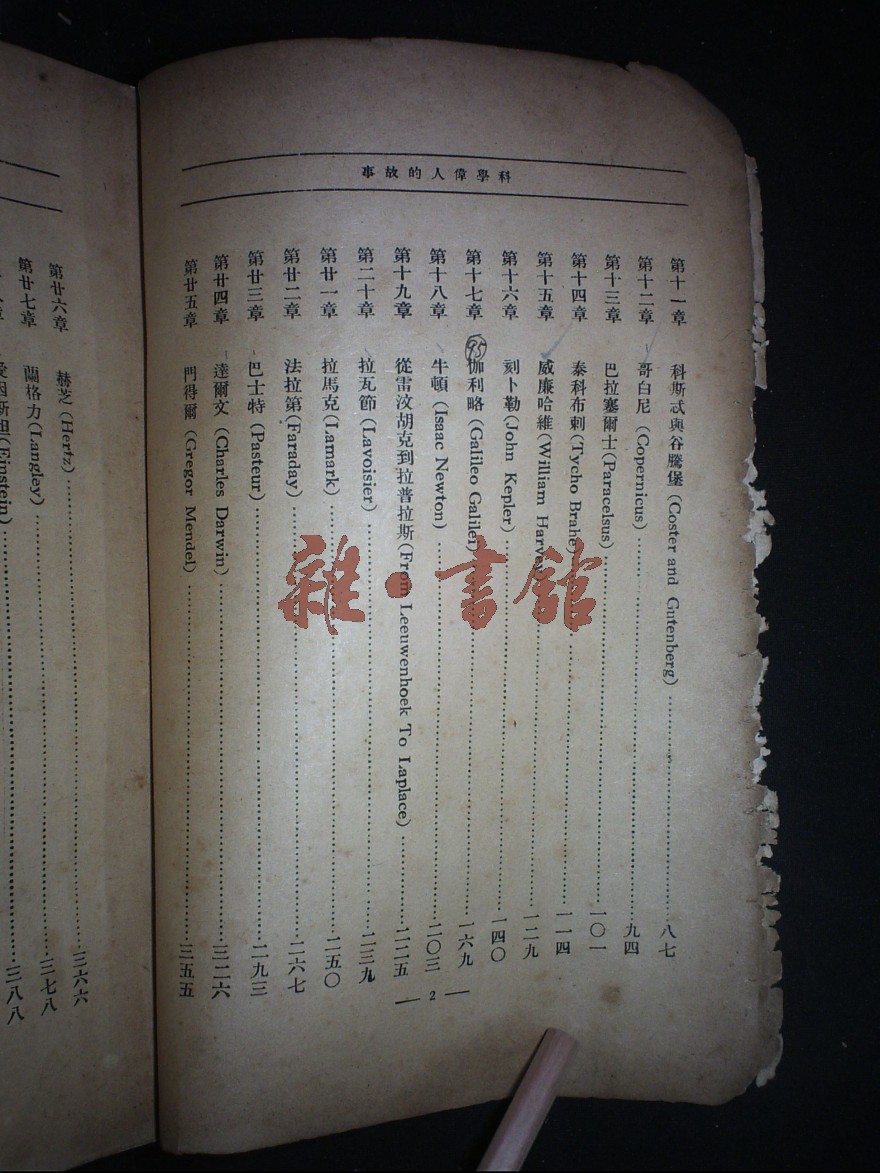 科學偉人的故事
第十一章 科斯忒與谷騰堡 (Coster and Gutenberg)……八七
第十二章 哥白尼 (Copernicus)……九四
第十三章 巴拉塞爾士 (Paracelsus)……一〇一
第十四章 泰科布剌 (Tycho Brahe)……一一四
第十五章 威廉哈維 (William Harvey)……一二九
第十六章 刻卜勒 (John Kepler)……一四〇
第十七章 95 伽利略 (Galileo Galilei)……一六九
第十八章 牛頓 (Isaac Newton)……二〇三
第十九章 從雷汶胡克到拉普拉斯 (From Leeuwenhoek To Laplace)……二二五
第二十章 拉瓦節 (Lavoisier)……二三九
第廿一章 拉馬克 (Lamark)……二五〇
第廿二章 法拉第 (Faraday)……二六七
第廿三章 巴士特 (Pasteur)……二九三
第廿四章 達爾文 (Charles Darwin)……三二六
第廿五章 門得爾 (Gregor Mendel)……三五五
— 2 —
第廿六章 赫芝 (Hertz)……三六六
第廿七章 蘭格力 (Langley)……三七八
愛因斯坦 (Einstein)……三八八
雜·書館